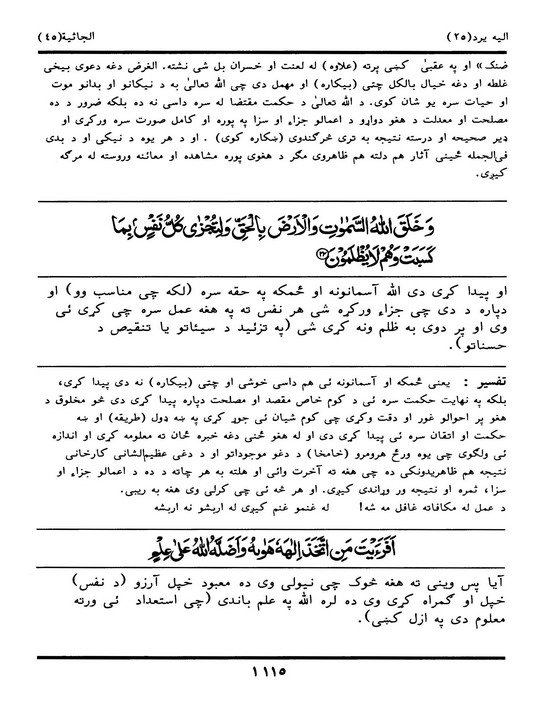 الیه یرد(۲۵) الجاثیة(٤٥)
ضنک» او په عقبیٰ کښی پرته (علاوه) له لعنت او خسران بل شی نشته. الغرض دغه دعوی بیخی
غلطه او دغه خیال بالکل چتی (بیکاره) او مهمل دی چی الله تعالیٰ به د نیکانو او بدانو موت
او حیات سره یو شان کوی. د الله تعالیٰ د حکمت مقتضا له سره داسی نه ده بلکه ضرور د ده
مصلحت او معدلت د هغو دواړو د اعمالو جزاء او سزا په پوره او کامل صورت سره ورکړی او
ډیر صحیحه او درسته نتیجه به تری څرګندوی (ښکاره کوی) . او د هر یوه د نیکی او د بدی
فی‌الجمله ځینی آثار هم دلته هم ظاهروی مګر د هغوی پوره مشاهده او معائنه وروسته له مرګه
کیږی.
وَخَلَقَ اللّٰهُ السَّمٰوٰتِ وَالْاَرْضَ بِالْحَقِّ وَلِتُجْزٰی کُلُّ نَفْسٍۭ بِمَا
کَسَبَتْ وَهُمْ لَا یُظْلَمُوْنَ﴿۲۲﴾
او پیدا کړی دی الله آسمانونه او ځمکه په حقه سره (لکه چی مناسب وو) او
دپاره د دی چی جزاء ورکړه شی هر نفس ته په هغه عمل سره چی کړی ئی
وی او پر دوی به ظلم ونه کړی شی (په تزئید د سیئاتو یا تنقیص د
حسناتو).
تفسیر : یعنی ځمکه او آسمانونه ئی هم داسی خوشی او چتی (بیکاره) نه دی پیدا کړی،
بلکه په نهایت حکمت سره ئی د کوم خاص مقصد او مصلحت دپاره پیدا کړی دی څو مخلوق د
هغو پر احوالو غور او دقت وکړی چی کوم شیان ئی جوړ کړی په ښه ډول (طریقه) او ښه
حکمت او اتقان سره ئی پیدا کړی دی او له هغو څنی دغه خبره ځان ته معلومه کړی او اندازه
ئی ولګوی چی یوه ورځ هرومرو (خامخا) د دغو موجوداتو او د دغی عظیم‌الشانی کارخانی
نتیجه هم ظاهریدونکی ده چی هغه ته آخرت وائی او هلته به هر چاته د ده د اعمالو جزاء او
سزا، ثمره او نتیجه ور وړاندی کیږی. او هر څه ئی چی کرلی وی هغه به ریبی.
د عمل له مکافاته غافل مه شه! له غنمو غنم کیږی له اربشو نه اربشه
اَفَرَءَیْتَ مَنِ اتَّخَذَ اِلٰهَهٗ هَوٰىهُ وَاَضَلَّهُ اللّٰهُ عَلٰی عِلْمٍ
آیا پس وینی ته هغه څوک چی نیولی وی ده معبود خپل آرزو (د نفس)
خپل او ګمراه کړی وی ده لره الله په علم باندی (چی استعداد ئی ورته
معلوم دی په ازل کښی).
۱۱۱۵